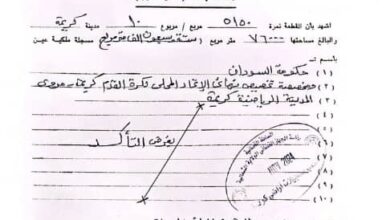 اشهد بأن القطعة نمرة ٥١٥٠ مربع / مربوع ١٠ مدينة كريمة
والبالغ مساحتها ٧٦٠٠٠ متر مربع (ستة وسبعون الف متر مربع) مسجلة ملكية عين
باسم
(١) حكومة السودان
(٢) مخصصة تخصيص نهائي الإتحاد المحلي لكرة القدم كريمة، مروي
(٣) المدينة الرياضية كريمة
(٤)
(٥)
(٦) لغرض التأكد
(٧)
(٨)
(٩)
(١٠)